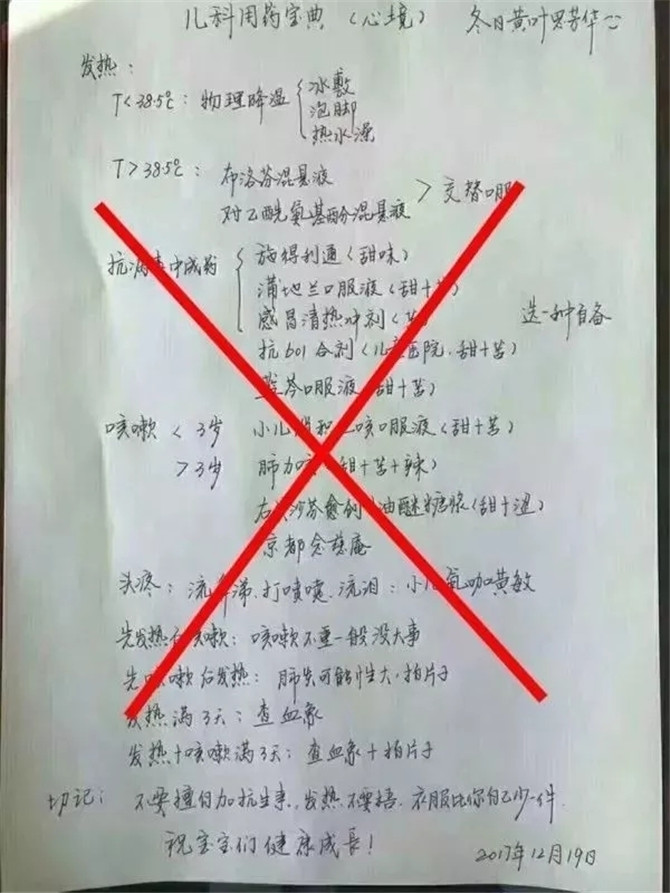 儿科用药宝典（心境） 冬日黄叶思芳华
发热：
T<38.5℃：物理降温
冰敷
泡脚
热水澡
T>38.5℃：布洛芬混悬液
对乙酰氨基酚混悬液
>交替口服
抗病毒中成药
施得利通（甜味）
蒲地兰口服液（甜+苦）
感冒清热冲剂（苦）
选一种自备
抗601合剂（儿童医院，甜+苦）
蓝芩口服液（甜+苦）
咳嗽 <3岁 小儿消积止咳口服液（甜+苦）
>3岁 肺力咳（甜+苦+辣）
右美沙芬愈创甘油醚糖浆（甜+涩）
京都念慈庵
头疼：流鼻涕、打喷嚏、流泪：小儿氨咖黄敏
先发热后咳嗽：咳嗽不重一般没大事
先咳嗽后发热：肺炎可能性大，拍片子
发热满3天：查血象
发热+咳嗽满3天：查血象+拍片子
切记：不要擅自加抗生素，发热不要捂，衣服比你自己少一件.
祝宝宝们健康成长！
2017年12月19日